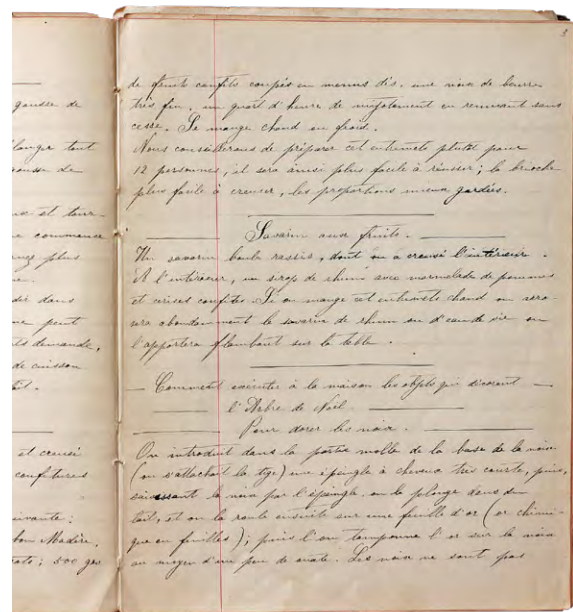 gousse de
élanger tout
ousse de
commence
plus
dir dans
ne peut
ts demande,
de cuisson
et creusi
confitures
ivante :
bon Madère,
500 grs
3
de fruits confits coupés en menus dés, une noix de beurre
très fin, un quart d'heure de mijotement en remuant sans
cesse. Se mange chaud ou froid.
Nous considérons de préparer cet entremets plutôt pour
12 personnes, il sera ainsi plus facile à réussir ; la brioche
plus facile à creuser, les proportions mieux gardées.
Savarin aux fruits.
Un savarin boule rassis, dont on a creusé l'intérieur.
A l'intérieur, un sirop de rhum avec marmelade de pommes
et cerises confites. Si on mange cet entremets chaud on aro-
sera abondamment le savarin de rhum ou d'eau de vie on
l'apportera flambant sur la table.
— Comment exécuter à la maison les objets qui décorent —
l'Arbre de Noël.
Pour dorer les noix.
On introduit dans la partie molle de la base de la noix
(ou s'attachait la tige) une épingle à cheveux très courte, puis,
saisissant la noix par l'épingle, on la plonge dans du
lait, et on la roule ensuite sur une feuille d'or (or chimi-
que en feuilles) ; puis l'on tamponne l'or sur la noix
au moyen d'un peu de ouate. Les noix ne sont pas